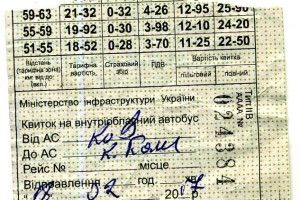 59-63 21-32 0-32 4-26 12-95 25-90
55-59 19-92 0-30 3-98 12-10 24-20
51-55 18-52 0-28 3-70 11-25 22-50
Відстань (тарифна зона) км від-до (вкл.) Тарифна вартість Страховий збір ПДВ Вартість квитка пільговий повний
Міністерство інфраструктури України
Квиток на внутрішньообласний автобус
Від АС
До АС
Рейс № місце
Відправлення год. хв.
02 2017
Тип ІІВ
024384